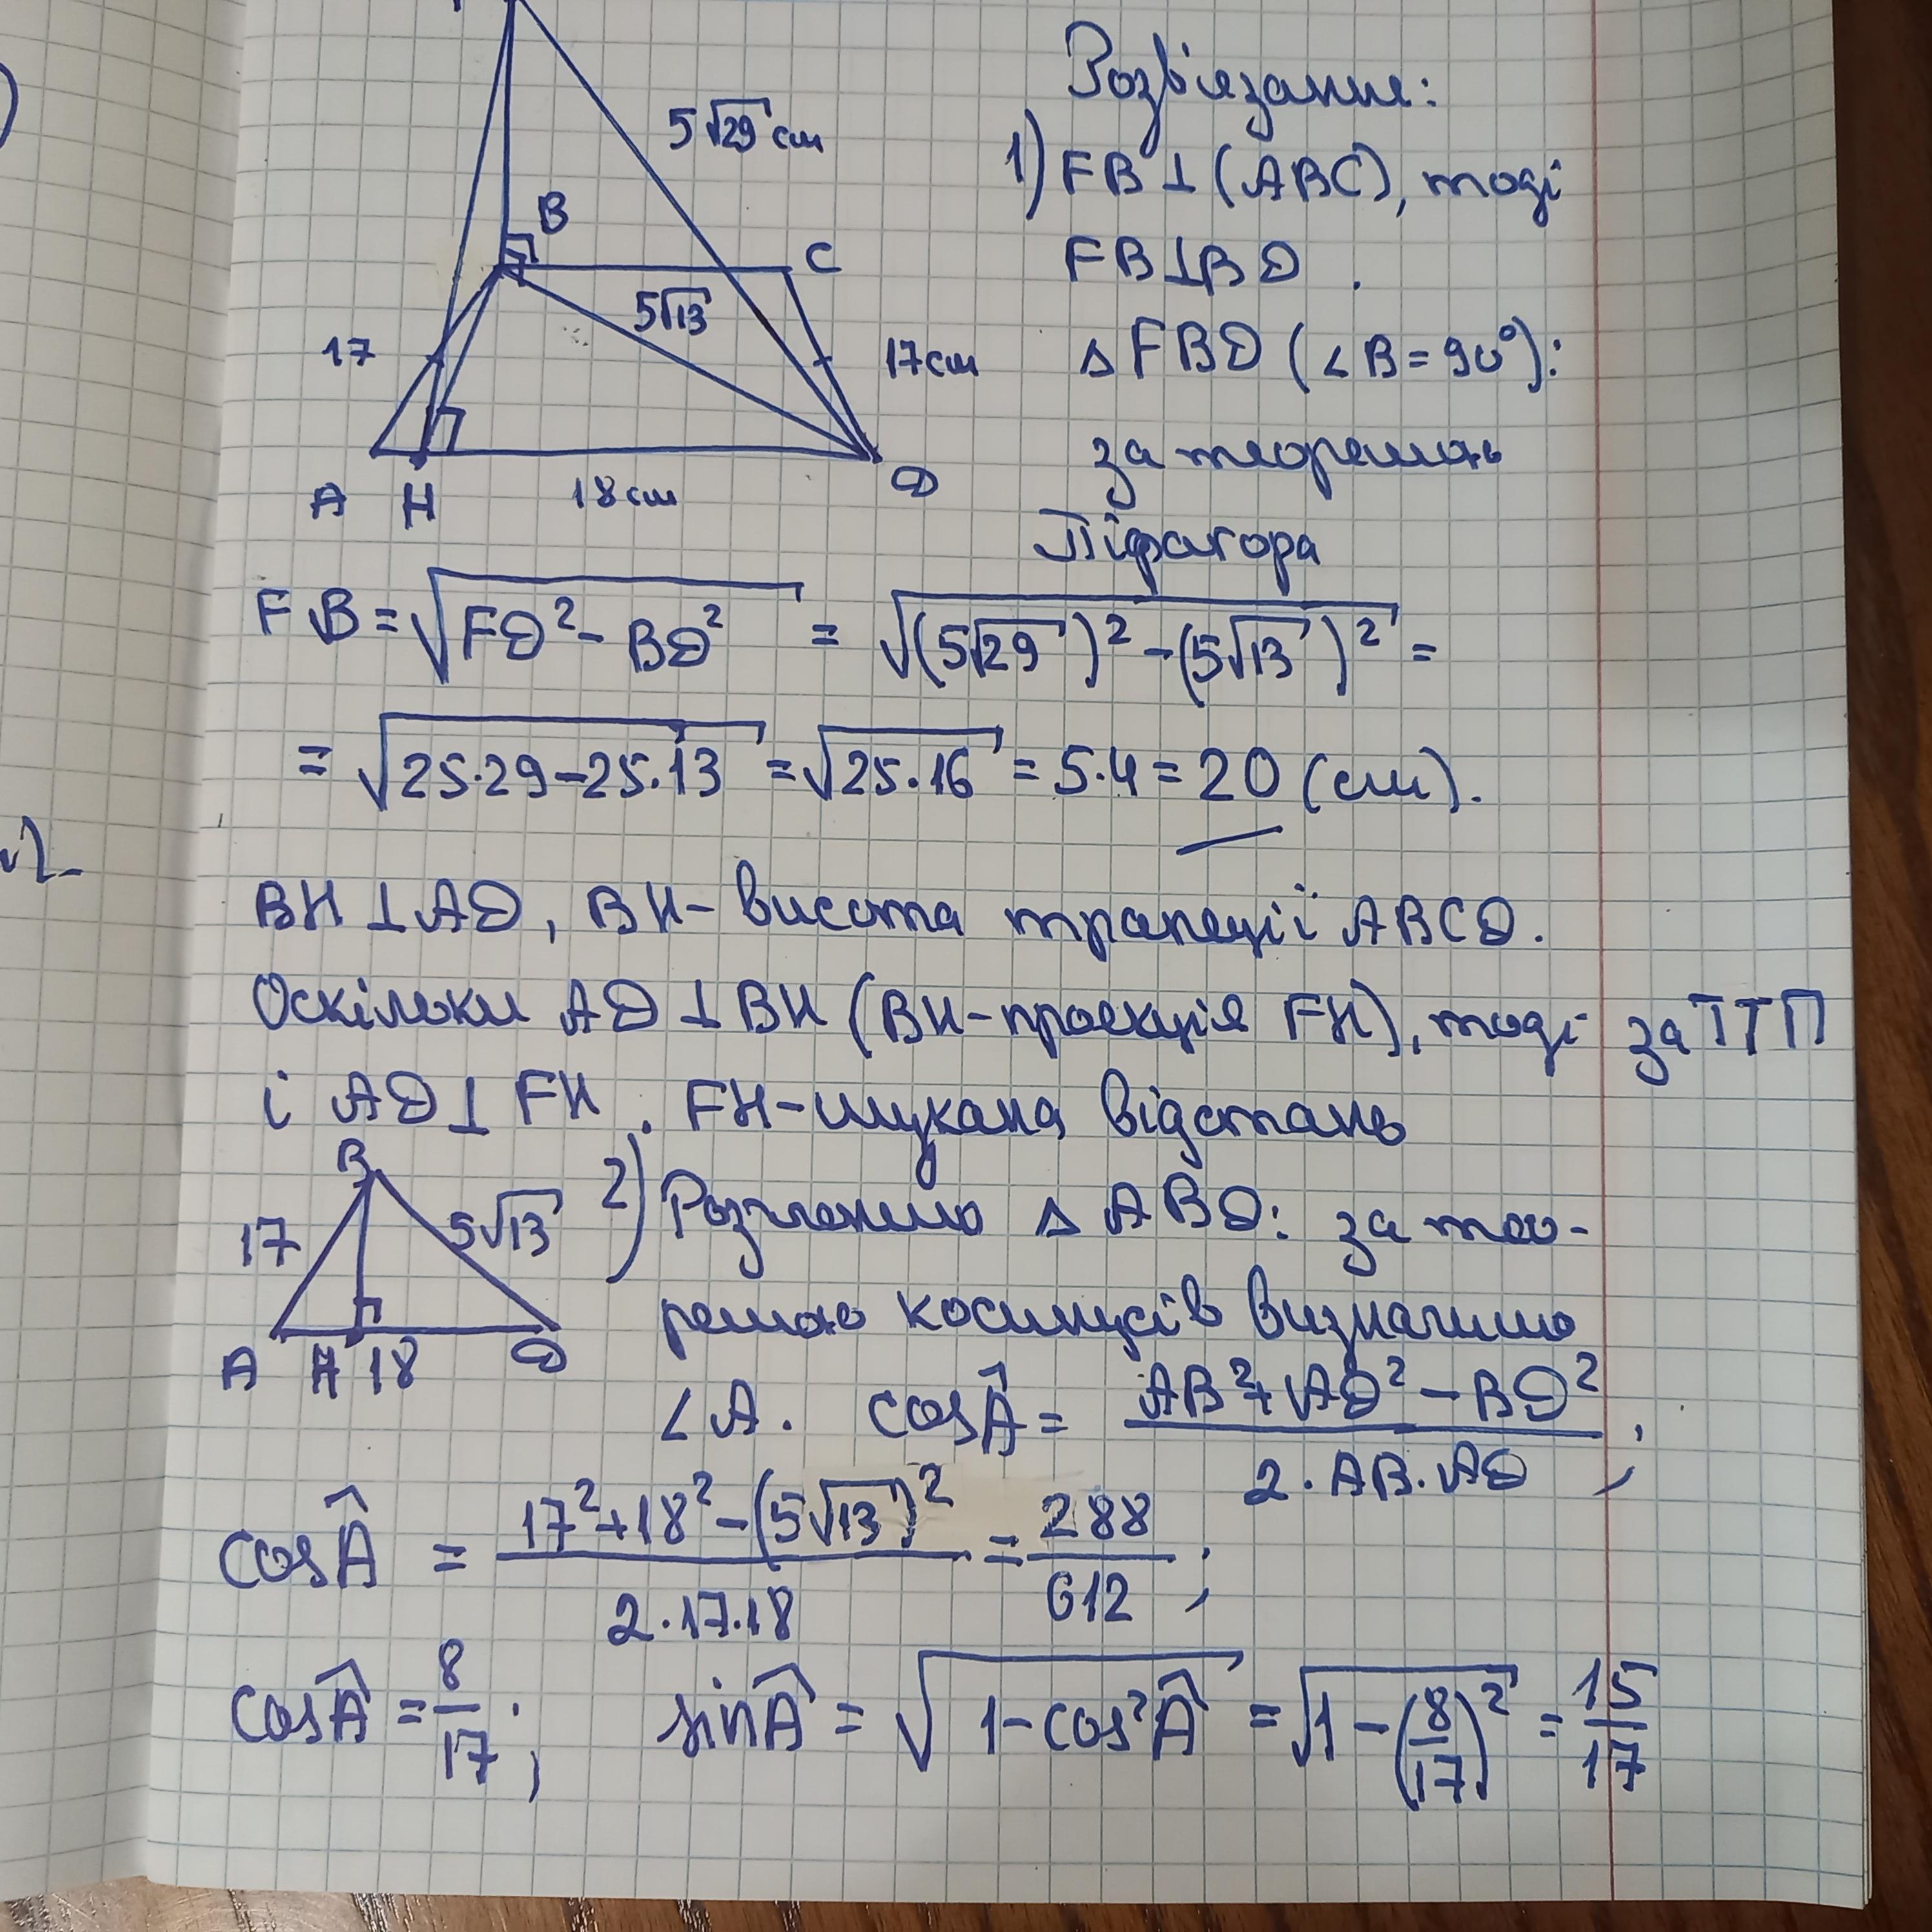 5√29 см
B
C
5√13
17
17см
A
H
18 см
D
Розв'язання:
1) FB⊥(ABC), тоді
FB⊥BD.
△FBD (∠B=90°):
за теоремою
Піфагора
FB=√(FD²-BD²) = √((5√29)²-(5√13)²) =
=√(25·29-25·13)=√(25·16)=5·4=20 (см).
BH⊥AD, BH-висота трапеції ABCD.
Оскільки AD⊥BH (BH-проекція FH), тоді за ТТП
і AD⊥FH. FH-шукана відстань
B
17
5√13
A H 18 D
2) Розглянемо △ABD: за тео-
ремою косинусів визначимо
∠A. cosÂ= (AB²+AD²-BD²)/(2·AB·AD);
cosÂ = (17²+18²-(5√13)²)/(2·17·18) = 288/612;
cosÂ=8/17; sinÂ=√(1-cos²Â)=√(1-(8/17)²)=15/17